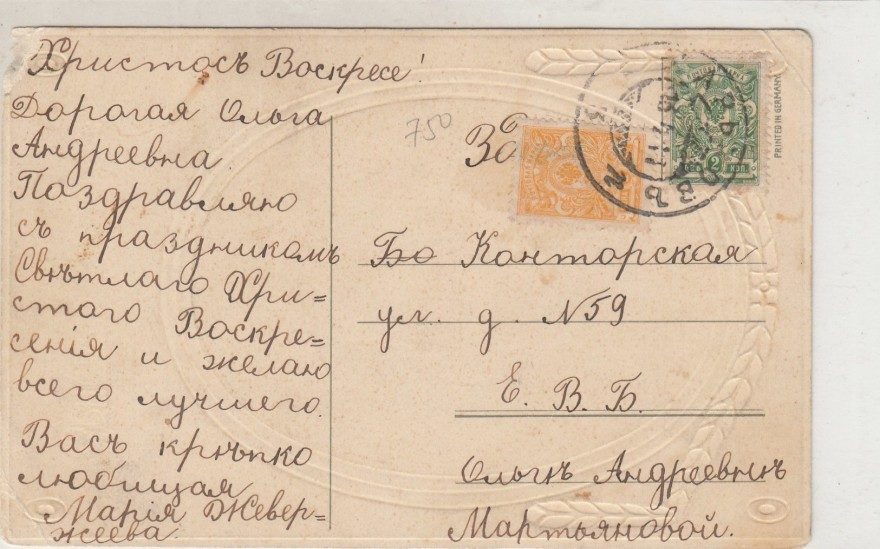 Христосъ Воскресе!
Дорогая Ольга
Андреевна
Поздравляю
съ праздникомъ
Свѣтлаго Хри=
стого Воскре=
сенія и желаю
всего лучшего.
Васъ крѣпко
любищая
Марія Жевер=
жеева.
750
PRINTED IN GERMANY
2 КОП.
Бо Конторская
ул. д. №59
Е. В. Б.
Ольгѣ Андреевнѣ
Мартьяновой.